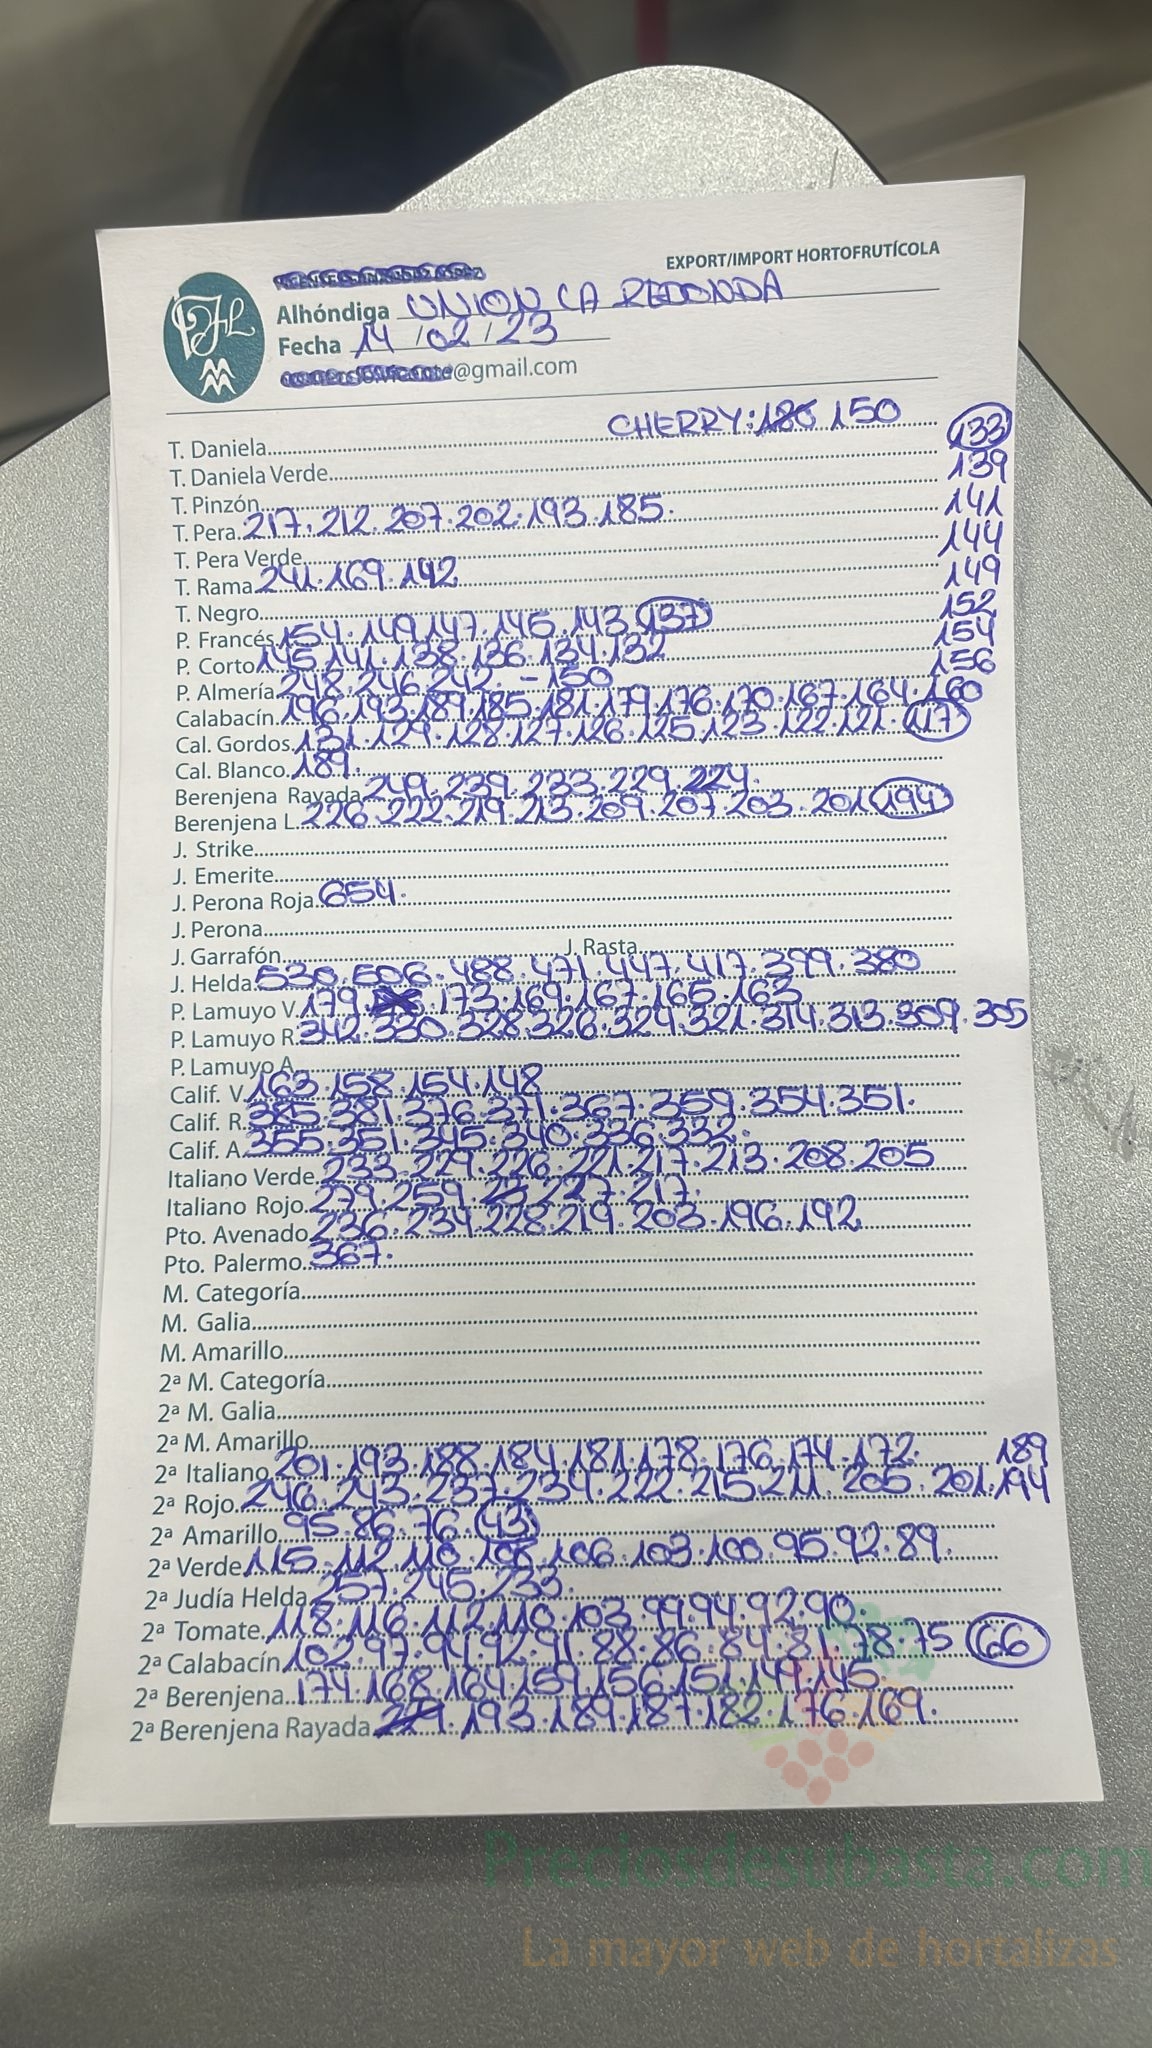 EXPORT/IMPORT HORTOFRUTÍCOLA
Alhóndiga UNION LA REDONDA
Fecha 14/02/23
@gmail.com
CHERRY: 150
T. Daniela 133
T. Daniela Verde 139
T. Pinzón 141
T. Pera 217. 212. 207. 202. 193. 185.
T. Pera Verde 144
T. Rama 241. 169. 142 149
T. Negro 152
P. Francés 154. 149. 147. 145. 143. 137 154
P. Corto 145. 141. 138. 136. 134. 132 156
P. Almería 248. 246. 242. - 150
Calabacín 196. 193. 189. 185. 181. 179. 176. 170. 167. 164. 160
Cal. Gordos 131. 129. 128. 127. 126. 125. 123. 122. 121. 117
Cal. Blanco 189.
Berenjena Rayada 249. 239. 233. 229. 224.
Berenjena L. 226. 222. 219. 213. 209. 207. 203. 201. 194
J. Strike
J. Emerite
J. Perona Roja 654.
J. Perona
J. Garrafón J. Rasta
J. Helda 530. 506. 488. 471. 447. 417. 399. 380
P. Lamuyo V. 179. 173. 169. 167. 165. 163
P. Lamuyo R. 342. 330. 328. 326. 324. 321. 314. 313. 309. 305
P. Lamuyo A.
Calif. V. 163. 158. 154. 148
Calif. R. 385. 381. 376. 371. 367. 359. 354. 351.
Calif. A. 355. 351. 345. 340. 336. 332.
Italiano Verde 233. 229. 226. 221. 217. 213. 208. 205
Italiano Rojo 279. 259. 227. 217.
Pto. Avenado 236. 234. 228. 219. 203. 196. 192
Pto. Palermo 367.
M. Categoría
M. Galia
M. Amarillo
2ª M. Categoría
2ª M. Galia
2ª M. Amarillo
2ª Italiano 201. 193. 188. 184. 181. 178. 176. 174. 172. 189
2ª Rojo 246. 243. 237. 234. 222. 215. 211. 205. 201. 194
2ª Amarillo 95. 86. 76. 43
2ª Verde 115. 112. 110. 108. 106. 103. 100. 95. 92. 89.
2ª Judía Helda 257. 245. 233.
2ª Tomate 118. 116. 112. 110. 103. 99. 94. 92. 90.
2ª Calabacín 102. 97. 94. 92. 91. 88. 86. 84. 81. 78. 75 66
2ª Berenjena 174. 168. 164. 159. 156. 151. 149. 145.
2ª Berenjena Rayada 193. 189. 187. 182. 176. 169.
Preciosdesubasta.com
La mayor web de hortalizas